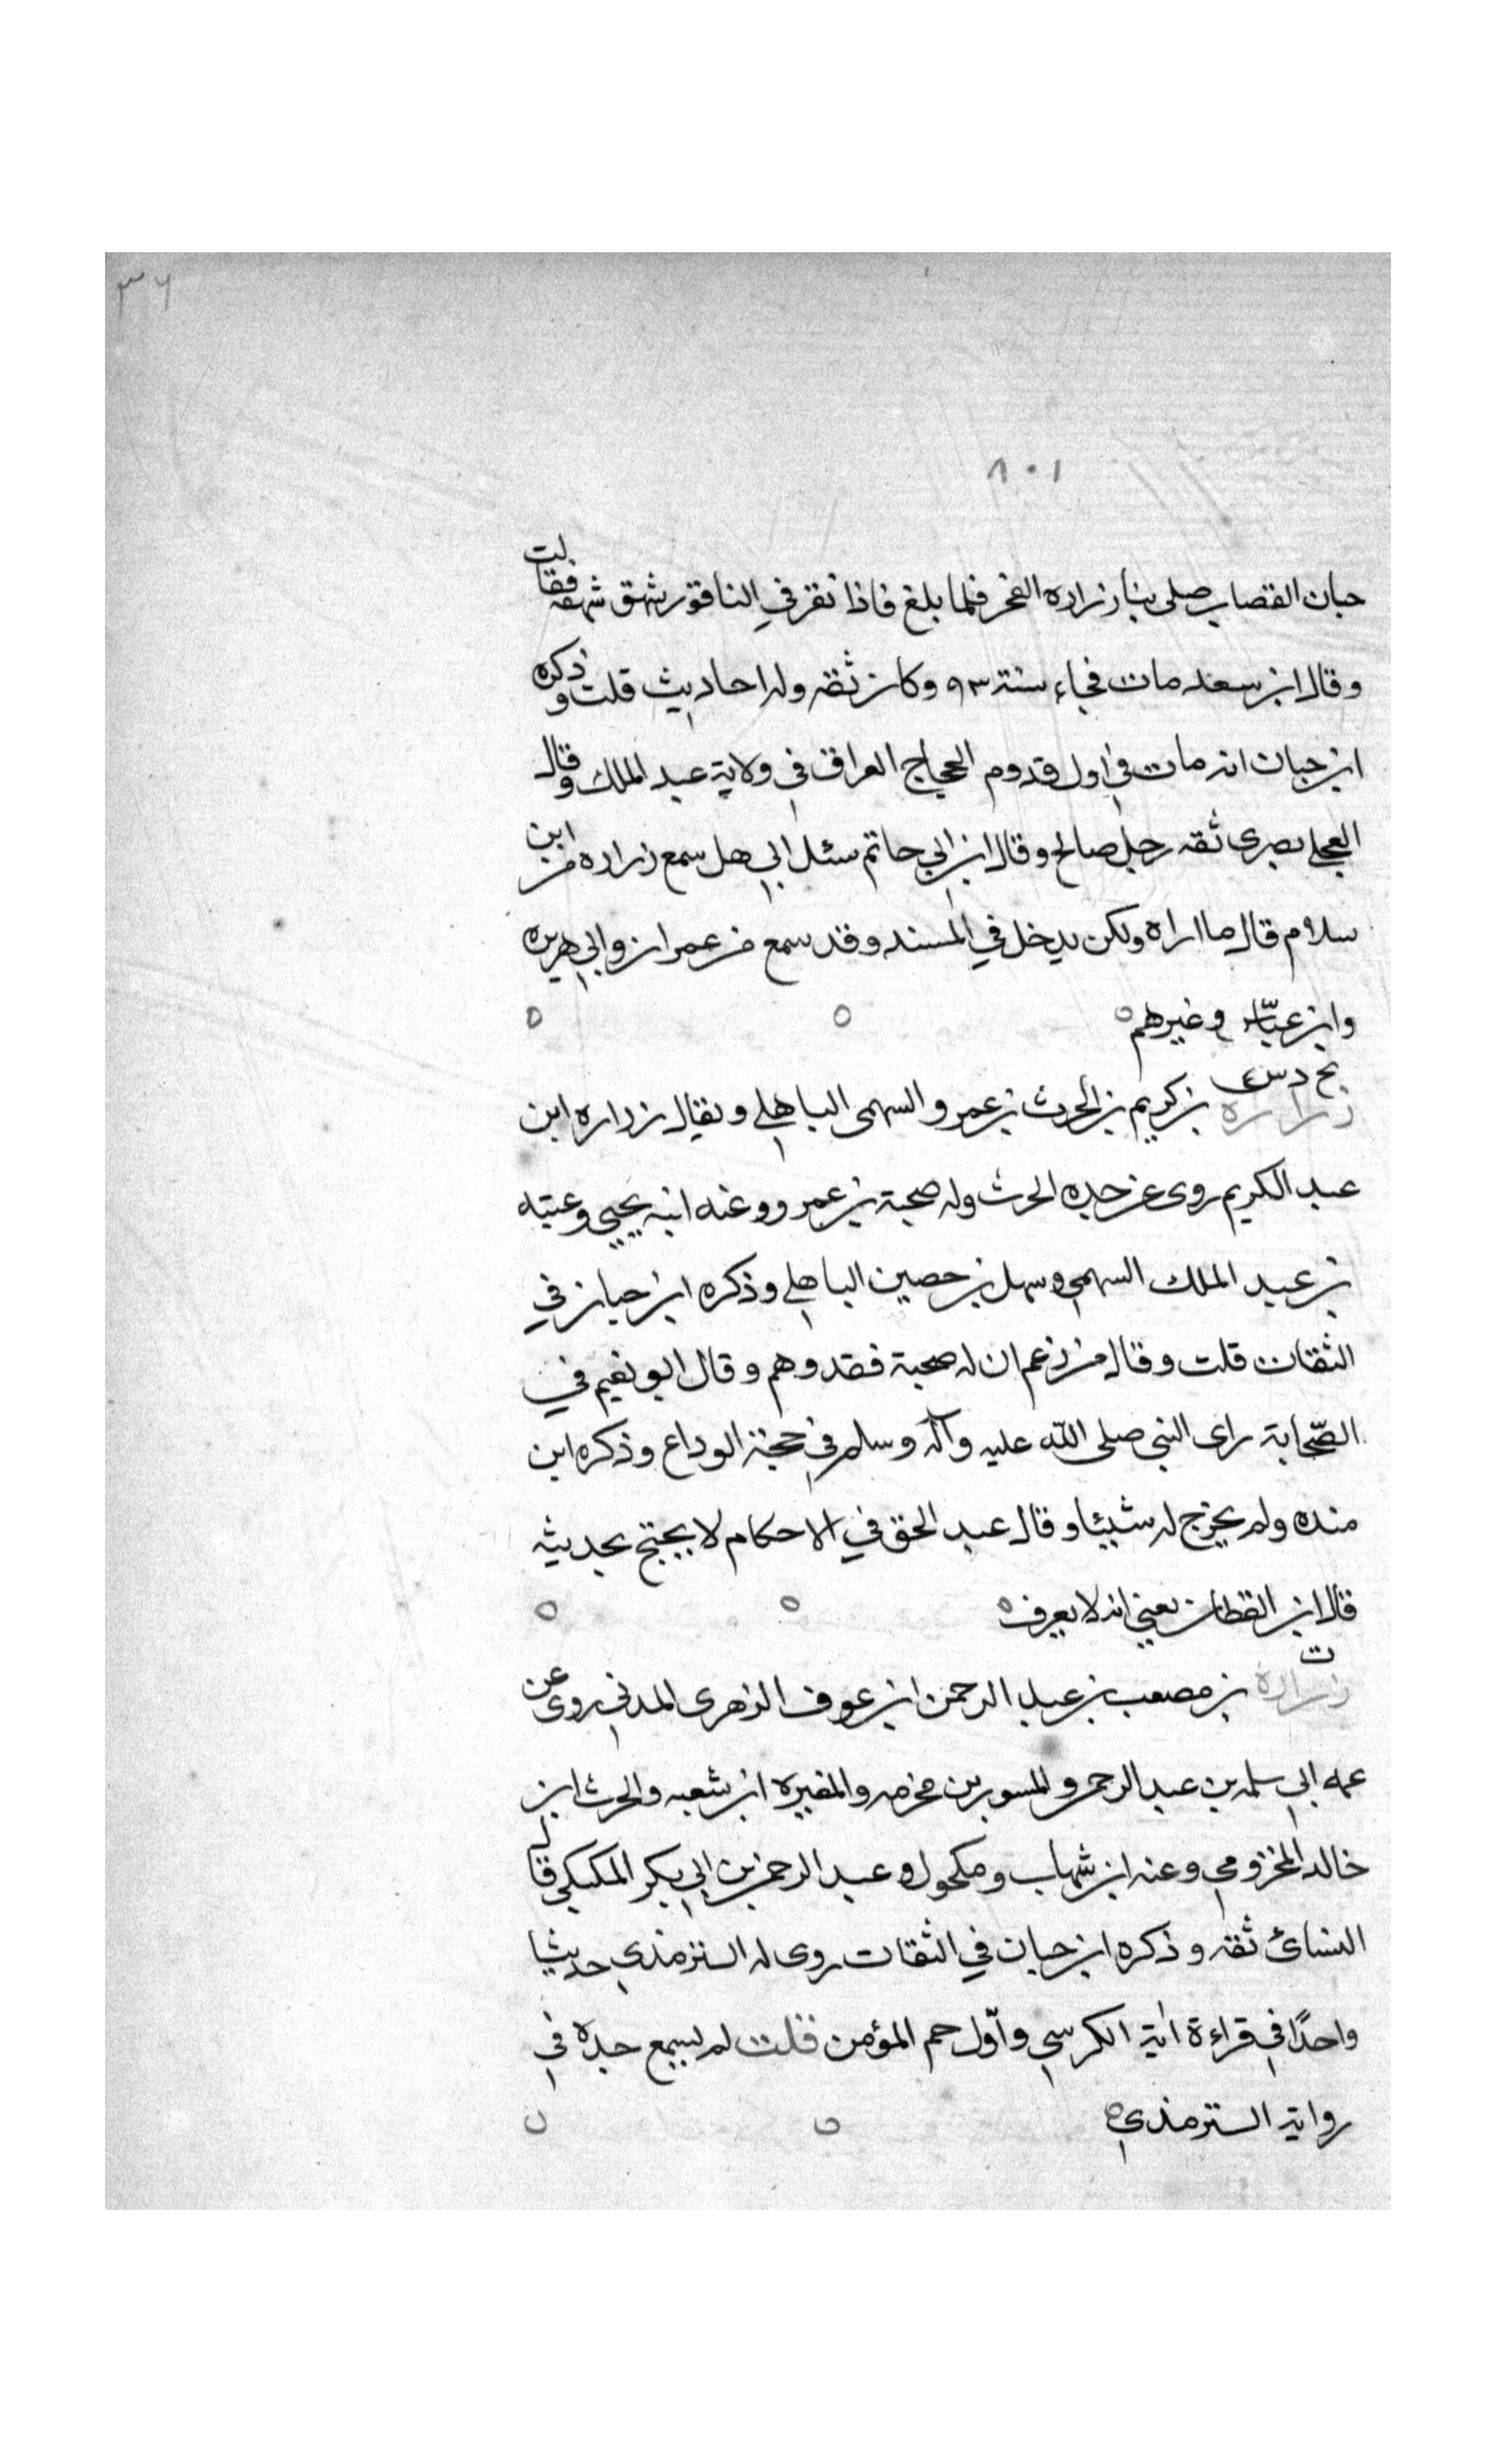 ٣٦
٨٠١
حبان القصاب صلى بنا زراره الفجر فلما بلغ فاذا نقر في الناقور شهق شهقه فقالت
وقال ابن سعد مات فجاء سنة ٩٣ وكان ثقه وله احاديث قلت وذكره
ابن حبان انه مات في اول قدوم الحجاج العراق في ولاية عبد الملك وقال
العجلي بصرى ثقه رجل صالح وقال ابن ابي حاتم سئل ابي هل سمع زراره من ابن
سلام قال ما اراه ولكن يدخل في المسند وقد سمع من عمران وابي هريره
وابن عباس وغيرهم
بخ د س
زرارة بن كريم بن الحرث بن عمرو السهمى الباهلي ويقال زراره ابن
عبد الكريم روى عن جده الحرث وله صحبة بن عمرو وعنه ابنه يحيي وعتبه
بن عبد الملك السهمي وسهل بن حصين الباهلي وذكره ابن حبان في
الثقات قلت وقال من زعم ان له صحبة فقد وهم وقال ابو نعيم في
الصّحابة راى النبي صلى اللّه عليه وآله وسلم في حجة الوداع وذكره ابن
منده ولم يخرج له شيئا وقال عبد الحق في الاحكام لا يحتج بحديثه
قال ابن القطان يعني انه لا يعرف
ت
زرارة بن مصعب بن عبد الرحمن ابن عوف الزهرى المدني روى عن
عمه ابي سلمه بن عبد الرحمن والمسور بن مخرمه والمغيره ابن شعبه والحرث ابن
خالد المخزومي وعنه ابن شهاب ومكحول وعبد الرحمن بن ابي بكر المكيكي قال
النسائ ثقه وذكره ابن حبان في الثقات روى له الترمذي حديثا
واحدًا في قراءة اية الكرسي واوّل حم المؤمن قلت لم يسمع جده في
رواية الترمذي